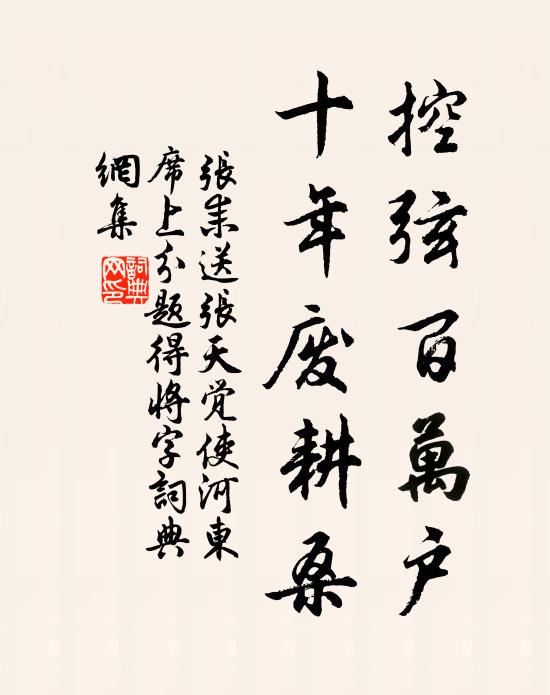 控弦百萬戶
十年废耕桑
張耒送張天觉使河東
席上分題得將字詞典
網集
詞典
网印